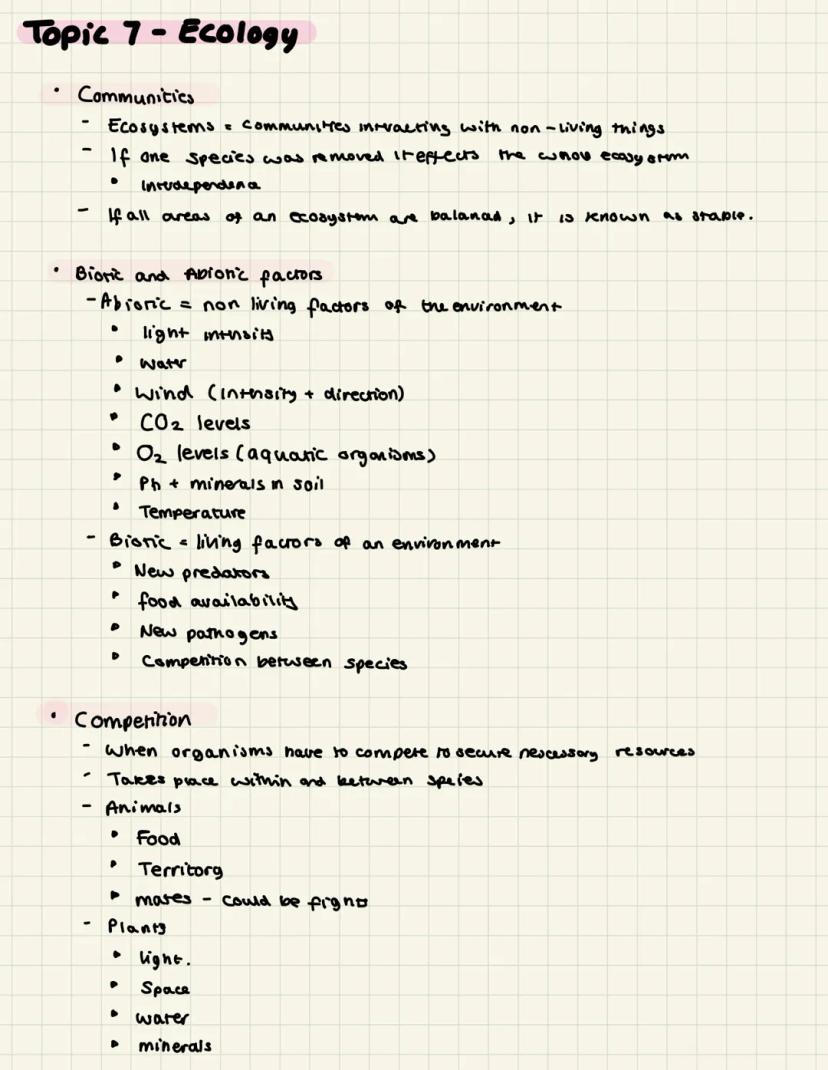 Topic 7 - Ecology
• Communities
- Ecosystems = communities interacting with non-living things
- If one species was removed it effects the whole ecosystem
• Interdependence
- If all areas of an ecosystem are balanced, it is known as stable.
• Biotic and Abiotic factors
- Abiotic = non living factors of the environment
• light intensity
• water
• Wind (intensity + direction)
• CO2 levels
• O2 levels (aquatic organisms)
• Ph + minerals in soil
• Temperature
- Biotic = living factors of an environment
• New predators
• food availability
• New pathogens
• Competition between species
• Competition
- When organisms have to compete to secure nescessory resources
- Takes place within and between species
- Animals
• Food
• Territory
• mates - could be fights
- Plants
• light.
• Space
• water
• minerals